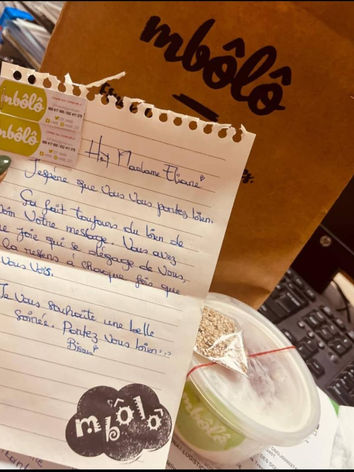 mbôlô
mbôlô
mbôlô
Hey Madame Eliane
J'espère que vous vous portez bien.
Sa fait toujours du bien de
Votre message. Vous avez
joie qui se dégage de Vous,
la ressens à chaque fois que
Vous Vois.
Je Vous souhaite une belle
Soirée. Portez Vous bien...
Bisou
mbôlô
mbôlô